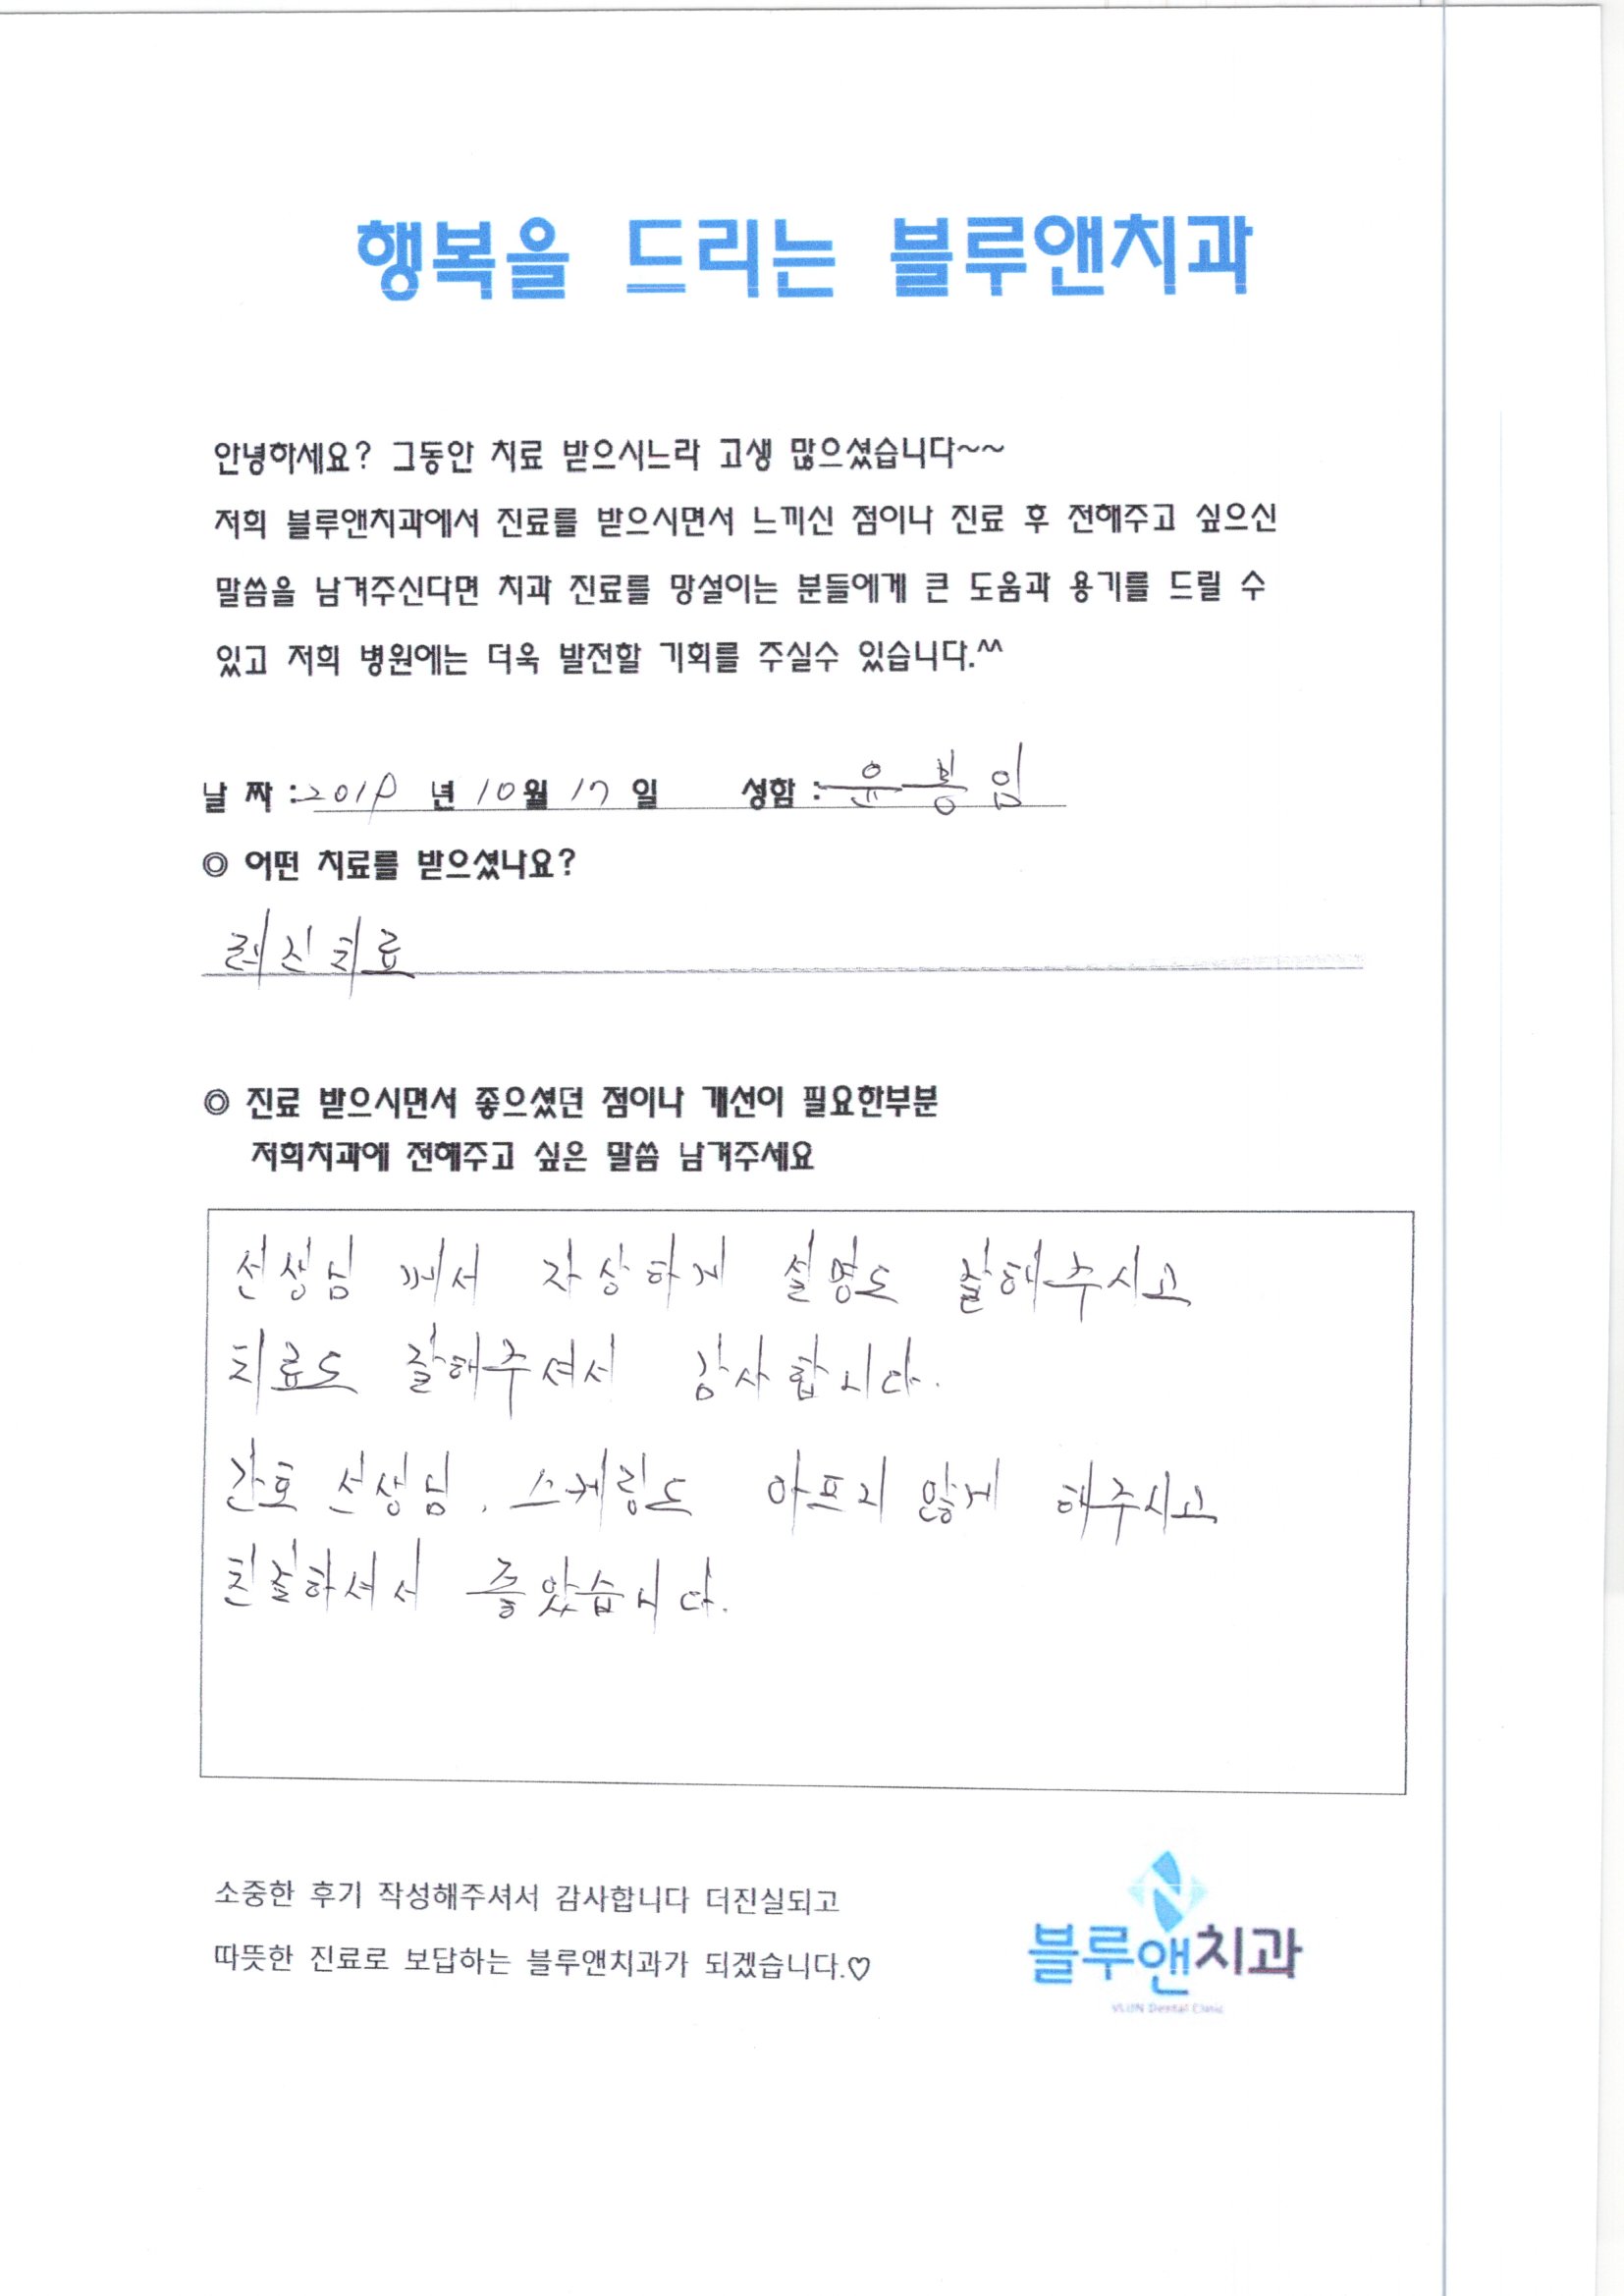 행복을 드리는 블루앤치과
안녕하세요? 그동안 치료 받으시느라 고생 많으셨습니다~~
저희 블루앤치과에서 진료를 받으시면서 느끼신 점이나 진료 후 전해주고 싶으신
말씀을 남겨주신다면 치과 진료를 망설이는 분들에게 큰 도움과 용기를 드릴 수
있고 저희 병원에는 더욱 발전할 기회를 주실수 있습니다.^^
날 짜 : 2019 년 10월 17 일 성함 : 윤봉임
◎ 어떤 치료를 받으셨나요?
레진치료
◎ 진료 받으시면서 좋으셨던 점이나 개선이 필요한부분
저희치과에 전해주고 싶은 말씀 남겨주세요
선생님 께서 자상하게 설명도 잘해주시고
치료도 잘해주셔서 감사합니다.
간호 선생님. 스케링도 아프지 않게 해주시고
친절하셔서 좋았습니다.
소중한 후기 작성해주셔서 감사합니다 더진실되고
따뜻한 진료로 보답하는 블루앤치과가 되겠습니다.♡
블루앤치과
VLUN Dental Clinic